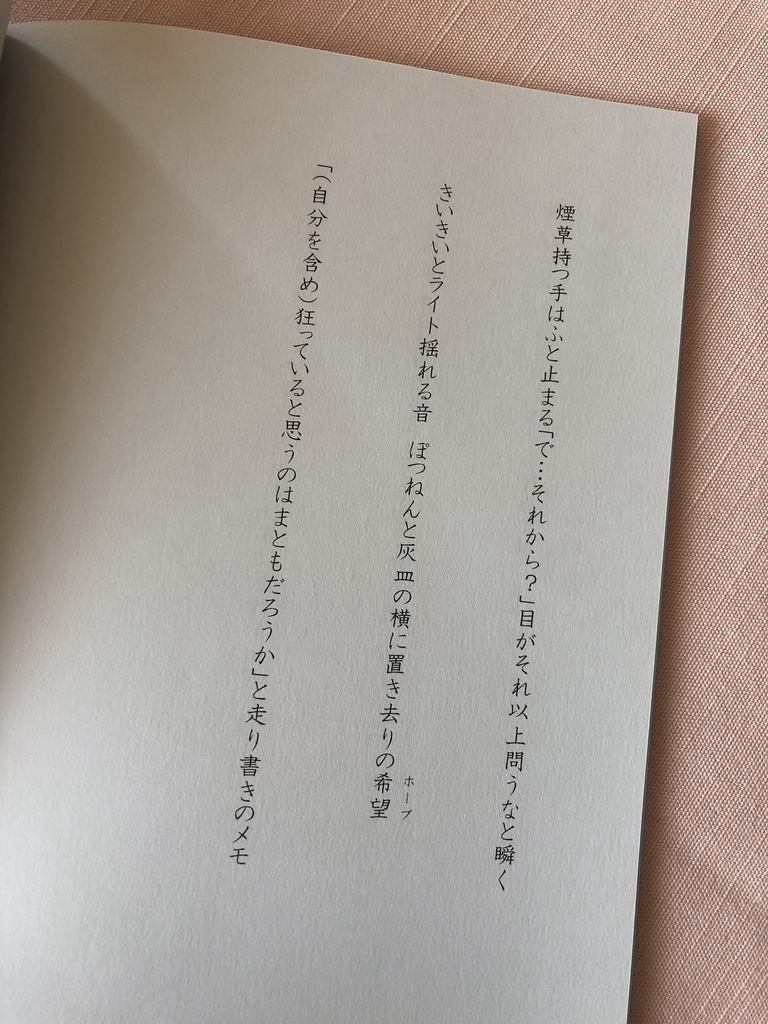 煙草持つ手はふと止まる「で…それから?」目がそれ以上問うなと瞬く
きいきいとライト揺れる音　ぽつねんと灰皿の横に置き去りの希望
ホープ
「(自分を含め)狂っていると思うのはまともだろうか」と走り書きのメモ